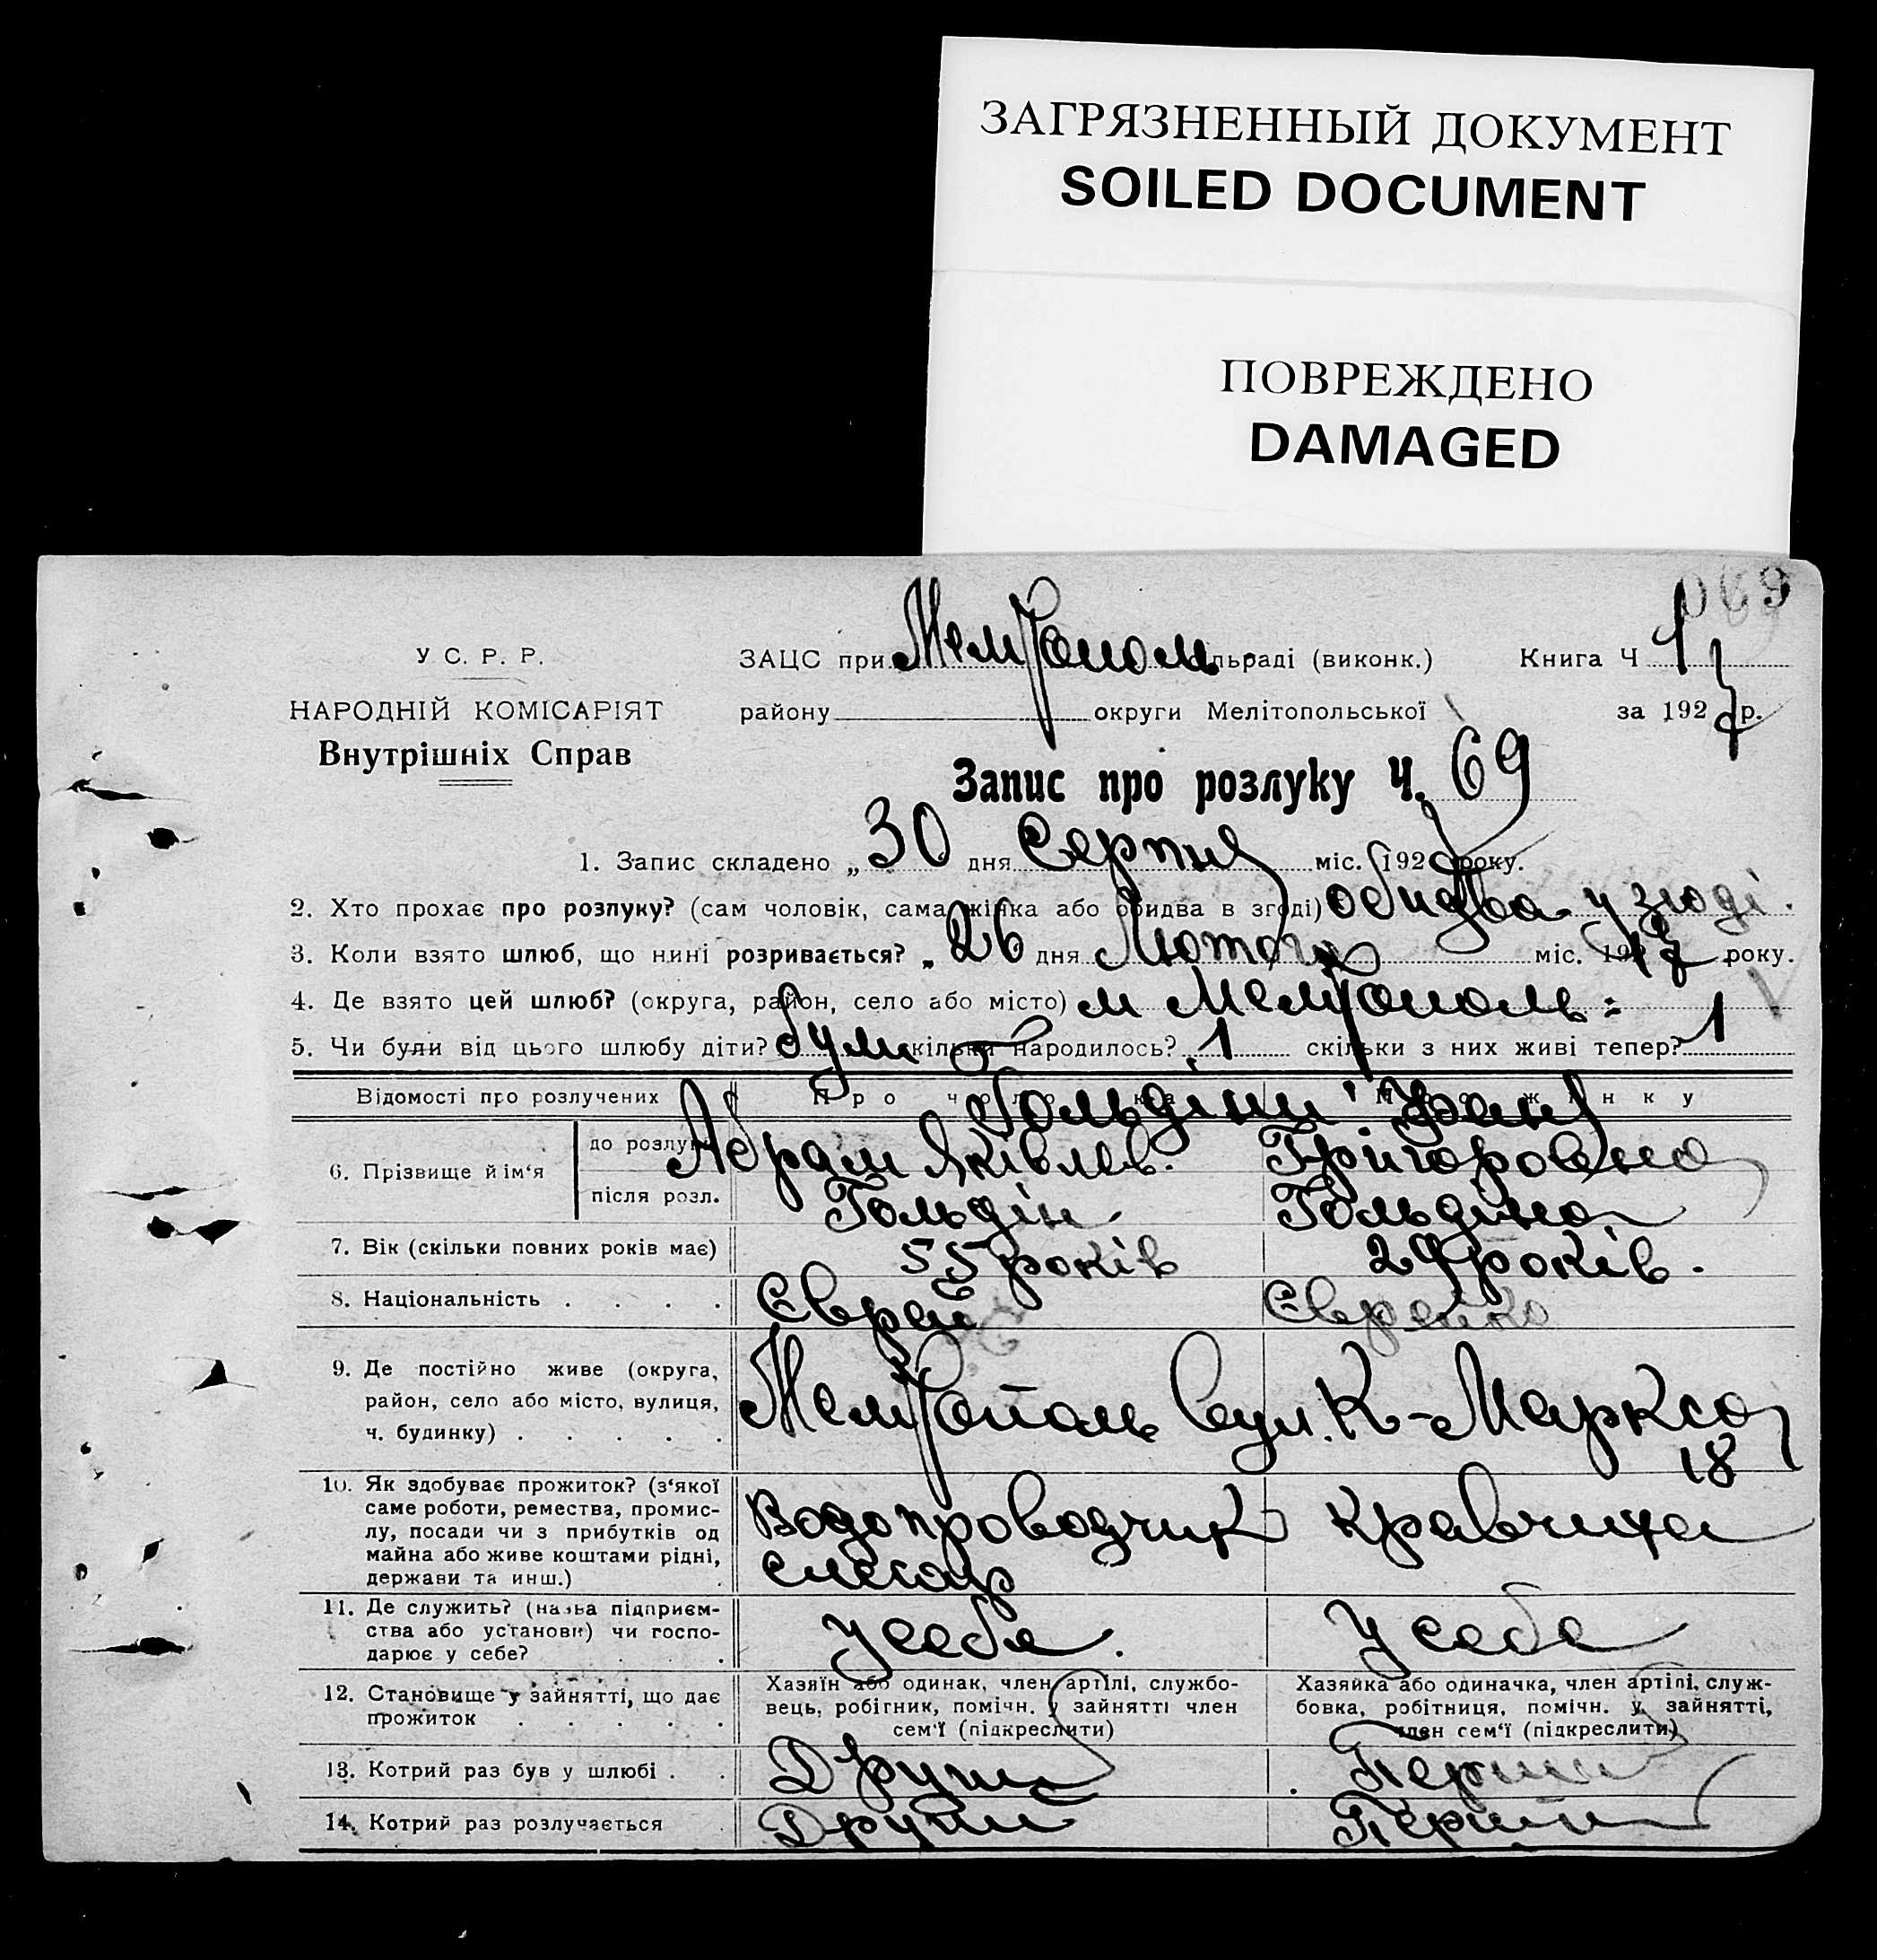 ЗАГРЯЗНЕННЫЙ ДОКУМЕНТ
SOILED DOCUMENT
ПОВРЕЖДЕНО
DAMAGED
069
У С. Р. Р.
ЗАЦС при Мелітополь льраді (виконк.) Книга Ч 1
НАРОДНІЙ КОМІСАРІЯТ
району округи Мелітопольської за 1927 р.
Внутрішніх Справ
Запис про розлуку Ч. 69
1. Запис складено „ 30 дня Серпня міс. 192 року.
2. Хто прохає про розлуку? (сам чоловік, сама жінка або обидва в згоді) обидва у згоді.
3. Коли взято шлюб, що нині розривається? „ 26 дня Лютого міс. 19 року.
4. Де взято цей шлюб? (округа, район, село або місто) м Мелітополь
5. Чи були від цього шлюбу діти? були скільки народилось? 1 скільки з них живі тепер? 1
Відомості про розлучених Про чоловіка Про жінку
Гольдіни
6. Прізвище й ім'я до розлуки Абрам Яківлев. Григоровна
після розл. Гольдін Гольдіна
7. Вік (скільки повних років має) 55 років 29 років.
8. Національність . . . . Єврей Єврейка
9. Де постійно живе (округа, район, село або місто, вулиця, ч. будинку) . . . . . Мелітополь вул. К-Маркса 18
10. Як здобуває прожиток? (з'якої саме роботи, ремества, промислу, посади чи з прибутків од майна або живе коштами рідні, держави та инш.) Водопроводчик слесар Кравчиха
11. Де служить? (назва підприємства або установи) чи господарює у себе? . . . У себе. У себе
12. Становище у зайнятті, що дає прожиток . . . . . Хазяїн або одинак, член артілі, службовець, робітник, помічн. у зайнятті член сем'ї (підкреслити) Хазяйка або одиначка, член артілі, службовка, робітниця, помічн. у зайнятті, член сем'ї (підкреслити)
13. Котрий раз був у шлюбі . . Другий Перший
14. Котрий раз розлучається . Другий Перший